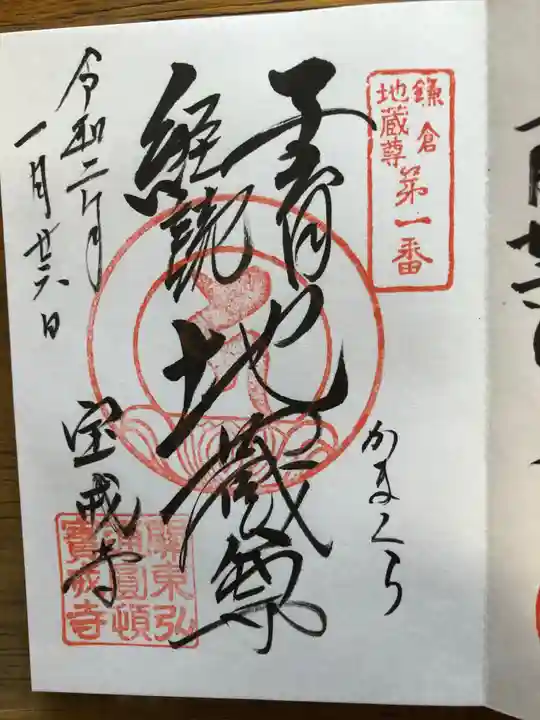 鎌倉
地蔵尊
第一番
かまくら
子育
経読
地蔵尊
令和二年
一月廿六日
宝戒寺
關東弘
通圓頓
寶戒寺